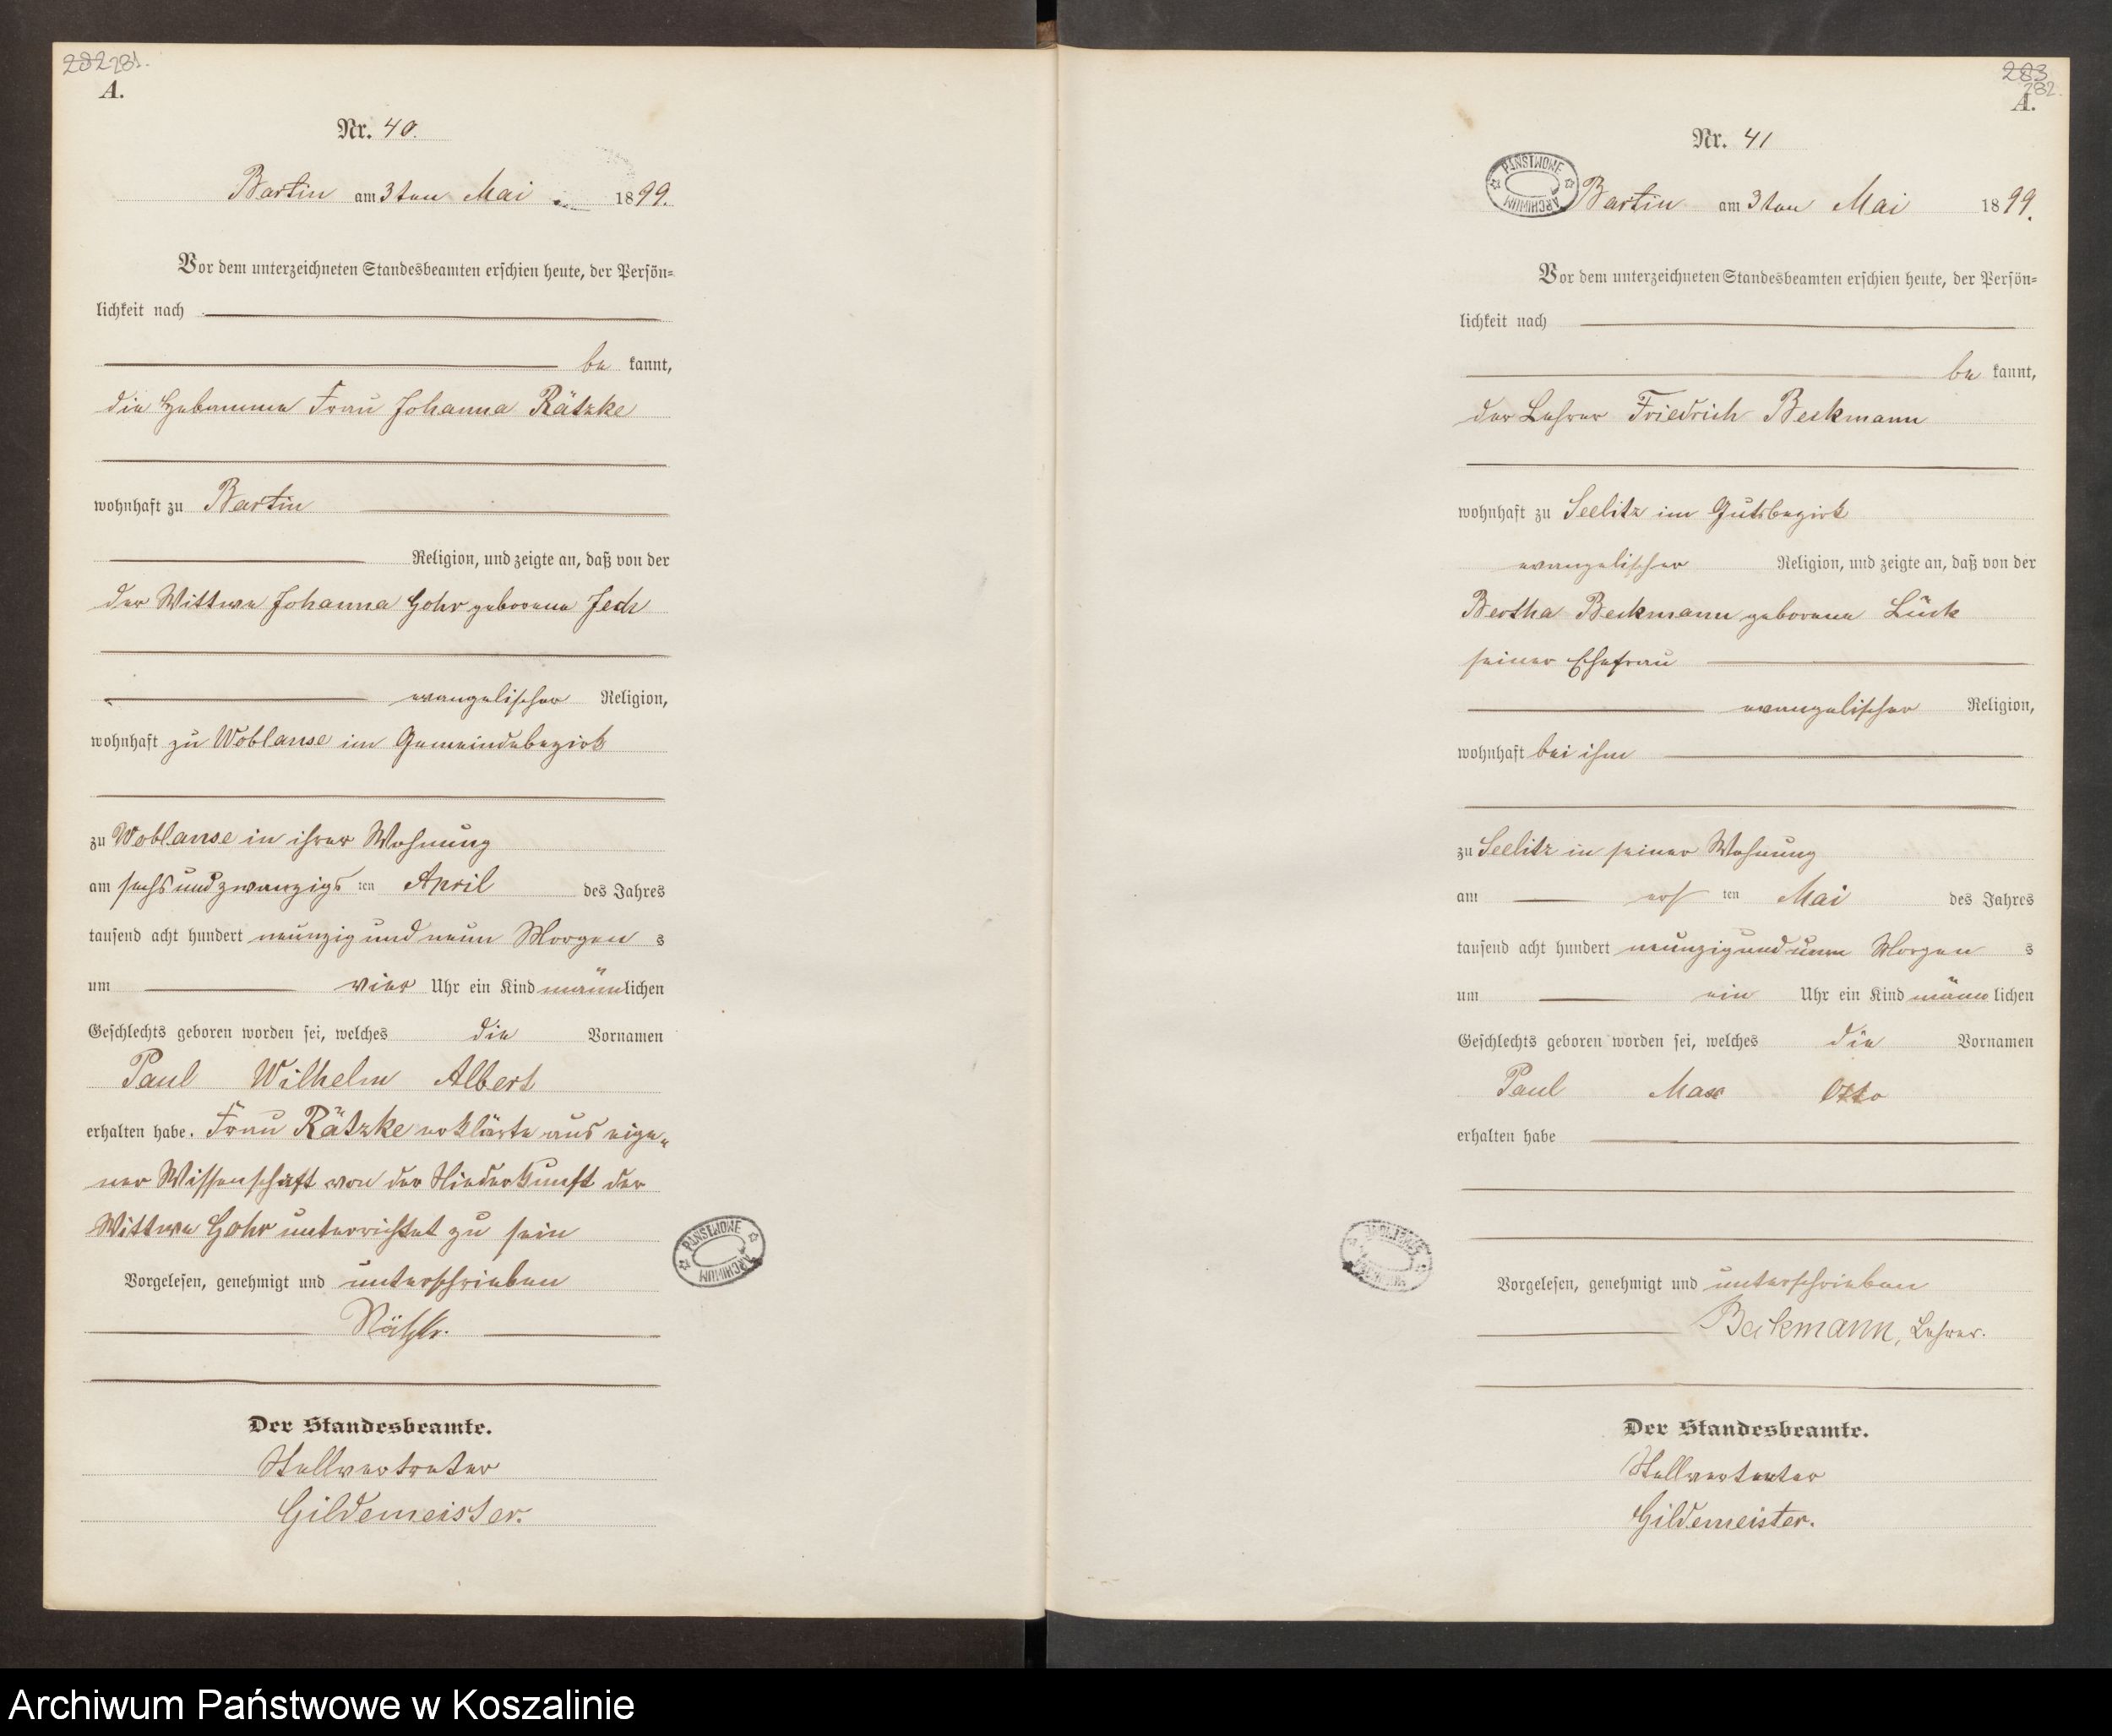 282 281.
A.
Nr. 40.
Bartin am 3ten Mai 1899.
Vor dem unterzeichneten Standesbeamten erschien heute, der Persön=
lichkeit nach
be kannt,
die Hebamme Frau Johanna Rätzke
wohnhaft zu Bartin
Religion, und zeigte an, daß von der
der Wittwe Johanna Gohr geborene Jech
evangelischer Religion,
wohnhaft zu Woblanse im Gemeindebezirk
zu Woblanse in ihrer Wohnung
am sechsundzwanzigs ten April des Jahres
tausend acht hundert neunzig und neun Morgen s
um vier Uhr ein Kind männlichen
Geschlechts geboren worden sei, welches die Vornamen
Paul Wilhelm Albert
erhalten habe. Frau Rätzke erklärte aus eige„
ner Wissenschaft von der Niederkunft der
Wittwe Gohr unterrichtet zu sein
PAŃSTWOWE ARCHIWUM
Vorgelesen, genehmigt und unterschrieben
Rätzke.
Der Standesbeamte.
Stellvertreter
Gildemeister.
283
282.
A.
Nr. 41
PAŃSTWOWE ARCHIWUM
Bartin am 3ten Mai 1899.
Vor dem unterzeichneten Standesbeamten erschien heute, der Persön=
lichkeit nach
be kannt,
der Lehrer Friedrich Beckmann
wohnhaft zu Seelitz im Gutsbezirk
evangelischer Religion, und zeigte an, daß von der
Bertha Beckmann geborene Lück
seiner Ehefrau
evangelischer Religion,
wohnhaft bei ihm
zu Seelitz in seiner Wohnung
am ers ten Mai des Jahres
tausend acht hundert neunzig und neun Morgen s
um ein Uhr ein Kind männ lichen
Geschlechts geboren worden sei, welches die Vornamen
Paul Max Otto
erhalten habe
PAŃSTWOWE ARCHIWUM
Vorgelesen, genehmigt und unterschrieben
Beckmann, Lehrer.
Der Standesbeamte.
Stellvertreter
Gildemeister.
Archiwum Państwowe w Koszalinie